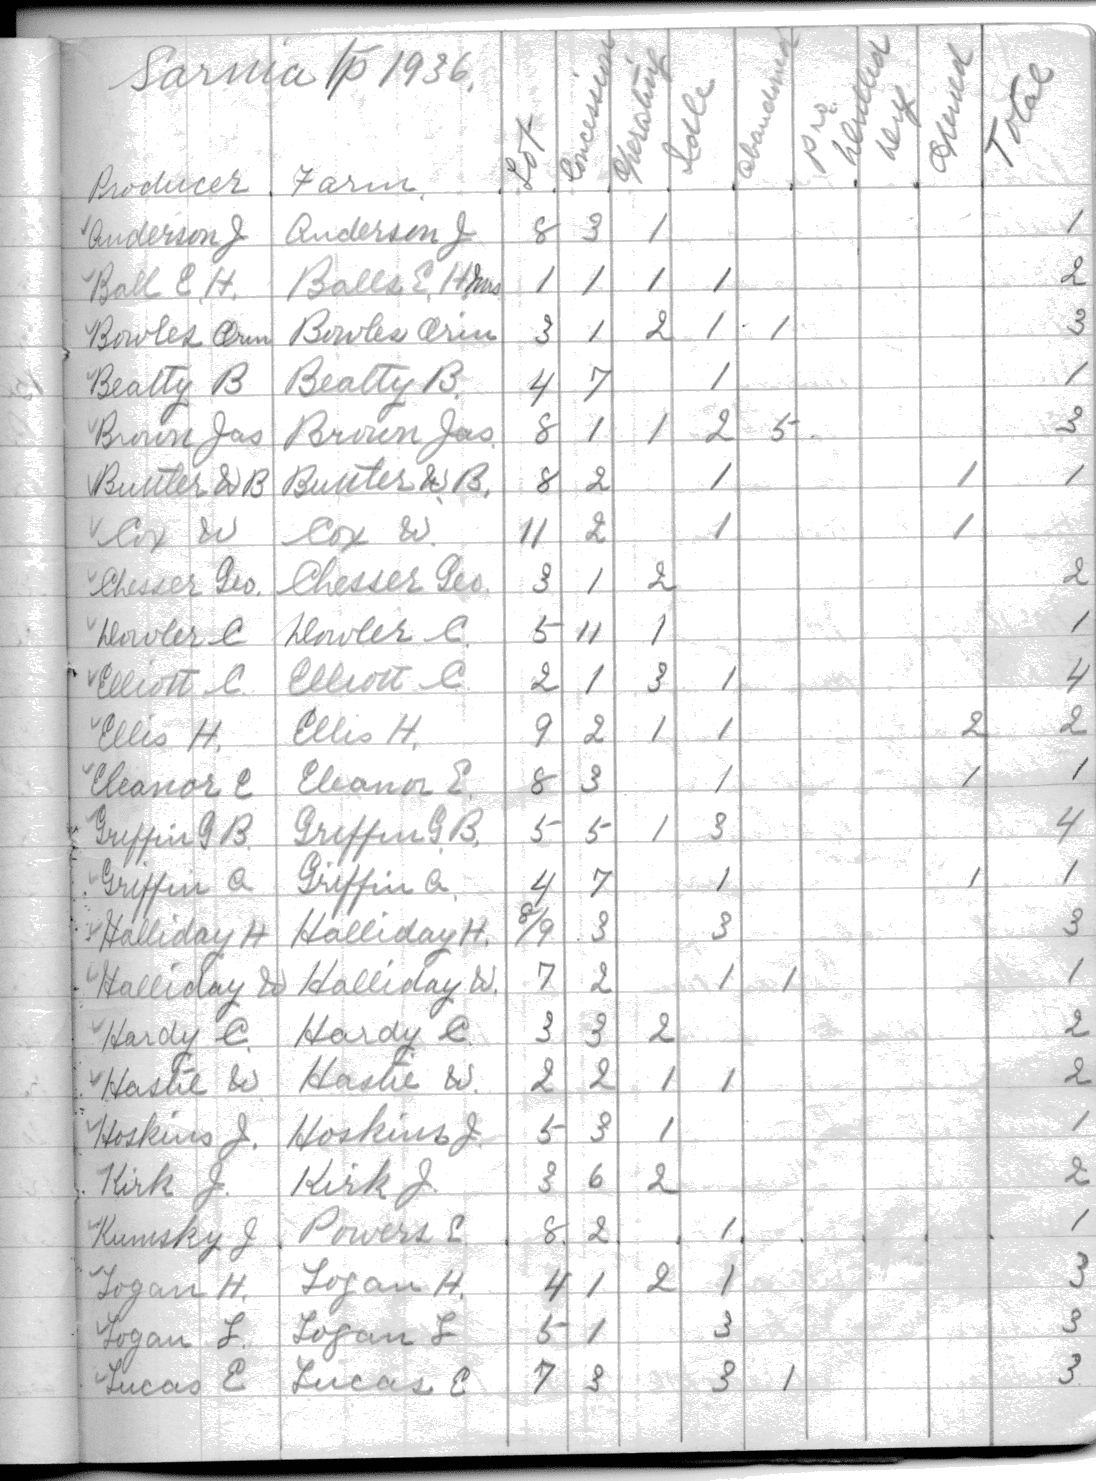 Sarnia T/P 1936.
Producer Farm. Lot Concession Operating Idle Abandoned Pre. Opened Total
Anderson J Anderson J 8 3 1 1
Ball E. H. Balls E. H. Mrs 1 1 1 1 2
Bowles Orin Bowles Orin 3 1 2 1 1 3
Beatty B Beatty B. 4 7 1 1
Brown Jas Brown Jas. 8 1 1 2 5 3
Buttler W B Buttler W. B. 8 2 1 1 1
Cox W Cox W. 11 2 1 1
Chesser Geo. Chesser Geo. 3 1 2 2
Dowler C Dowler C. 5 11 1 1
Elliott C. Elliott C. 2 1 3 1 4
Ellis H. Ellis H. 9 2 1 1 2 2
Eleanor E Eleanor E. 8 3 1 1 1
Griffin G B. Griffin G. B. 5 5 1 3 4
Griffin A Griffin A. 4 7 1 1 1
Halliday H Halliday H. 8/9 3 3 3
Halliday W Halliday W. 7 2 1 1 1
Hardy C. Hardy C. 3 3 2 2
Hastie W. Hastie W. 2 2 1 1 2
Hoskins J. Hoskins J. 5 3 1 1
Kirk J. Kirk J. 3 6 2 2
Kumsky J Powers E 8 2 1 1
Logan H. Logan H. 4 1 2 1 3
Logan L. Logan L 5 1 3 3
Lucas E Lucas E 7 3 3 1 3